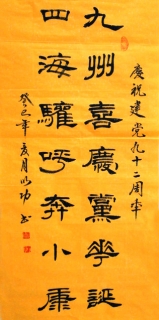 慶祝建党九十二周年
九州喜慶黨華誕
四海驩呼奔小康
癸巳年夏月以功书